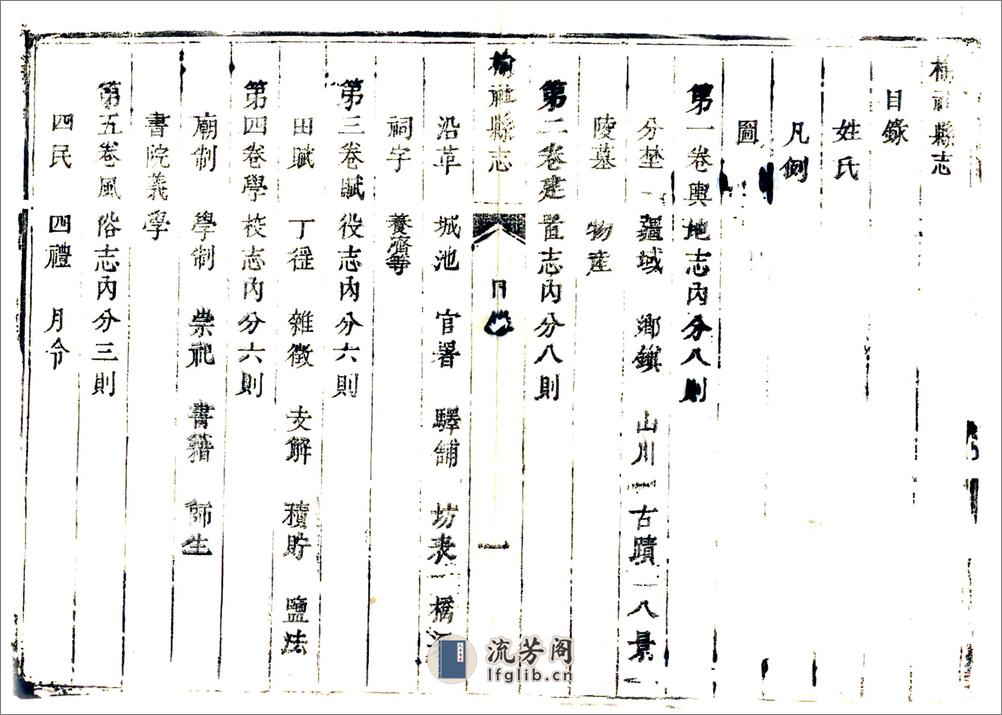 榆社縣志
目錄
姓氏
凡例
圖
第一卷輿地志內分八則
分埜 疆域 鄉鎮 山川 古蹟 八景
陵墓 物產
第二卷建置志內分八則
榆社縣志 目錄 一
沿革 城池 官署 驛舖 坊表 橋
祠宇 養濟等
第三卷賦役志內分六則
田賦 丁徭 雜徵 支解 積貯 鹽法
第四卷學校志內分六則
廟制 學制 崇祀 書籍 師生
書院義學
第五卷風俗志內分三則
四民 四禮 月令
流芳阁
lfglib.cn